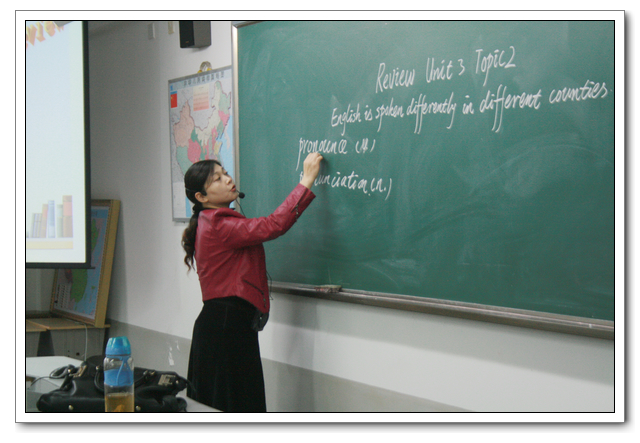 Review Unit 3 Topic 2
English is spoken differently in different counties.
pronounce
unciation (n.)